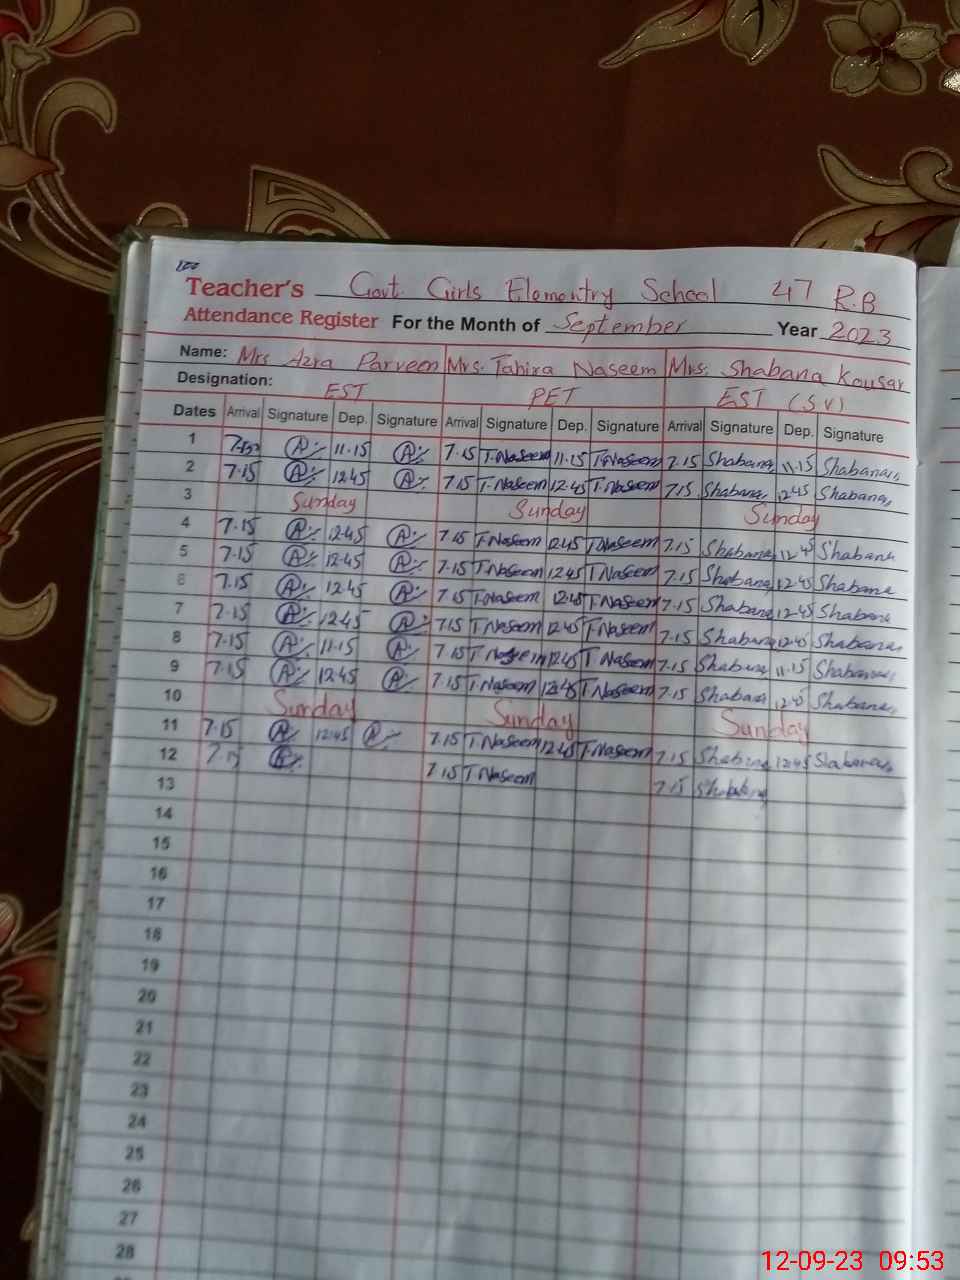 Teacher's Govt. Girls Elementry School 47 R.B
Attendance Register For the Month of September Year 2023
Name: Mrs Azra Parveen Mrs. Tahira Naseem Mrs. Shabana Kousar
Designation: EST PET EST (SV)
Dates Arrival Signature Dep. Signature Arrival Signature Dep. Signature Arrival Signature Dep. Signature
1 7.15 A 11.15 A 7.15 T.Naseem 11.15 T.Naseem 7.15 Shabana 11.15 Shabana
2 7.15 A 12.45 A 7.15 T.Naseem 12.45 T.Naseem 7.15 Shabana 12.45 Shabana
3 Sunday Sunday Sunday
4 7.15 A 12.45 A 7.15 T.Naseem 12.45 T.Naseem 7.15 Shabana 12.45 Shabana
5 7.15 A 12.45 A 7.15 T.Naseem 12.45 T.Naseem 7.15 Shabana 12.45 Shabana
6 7.15 A 12.45 A 7.15 T.Naseem 12.45 T.Naseem 7.15 Shabana 12.45 Shabana
7 7.15 A 12.45 A 7.15 T.Naseem 12.45 T.Naseem 7.15 Shabana 12.45 Shabana
8 7.15 A 11.15 A 7.15 T. 12.45 T.Naseem 7.15 Shabana 11.15 Shabana
9 7.15 A 12.45 A 7.15 T.Naseem 12.45 T.Naseem 7.15 Shabana 12.45 Shabana
10 Sunday Sunday Sunday
11 7.15 A 12.45 A 7.15 T.Naseem 12.45 T.Naseem 7.15 Shabana 12.45 Shabana
12 7.15 A 7.15 T.Naseem 7.15 Shabana
13
14
15
16
17
18
19
20
21
22
23
24
25
26
27
28
12-09-23 09:53